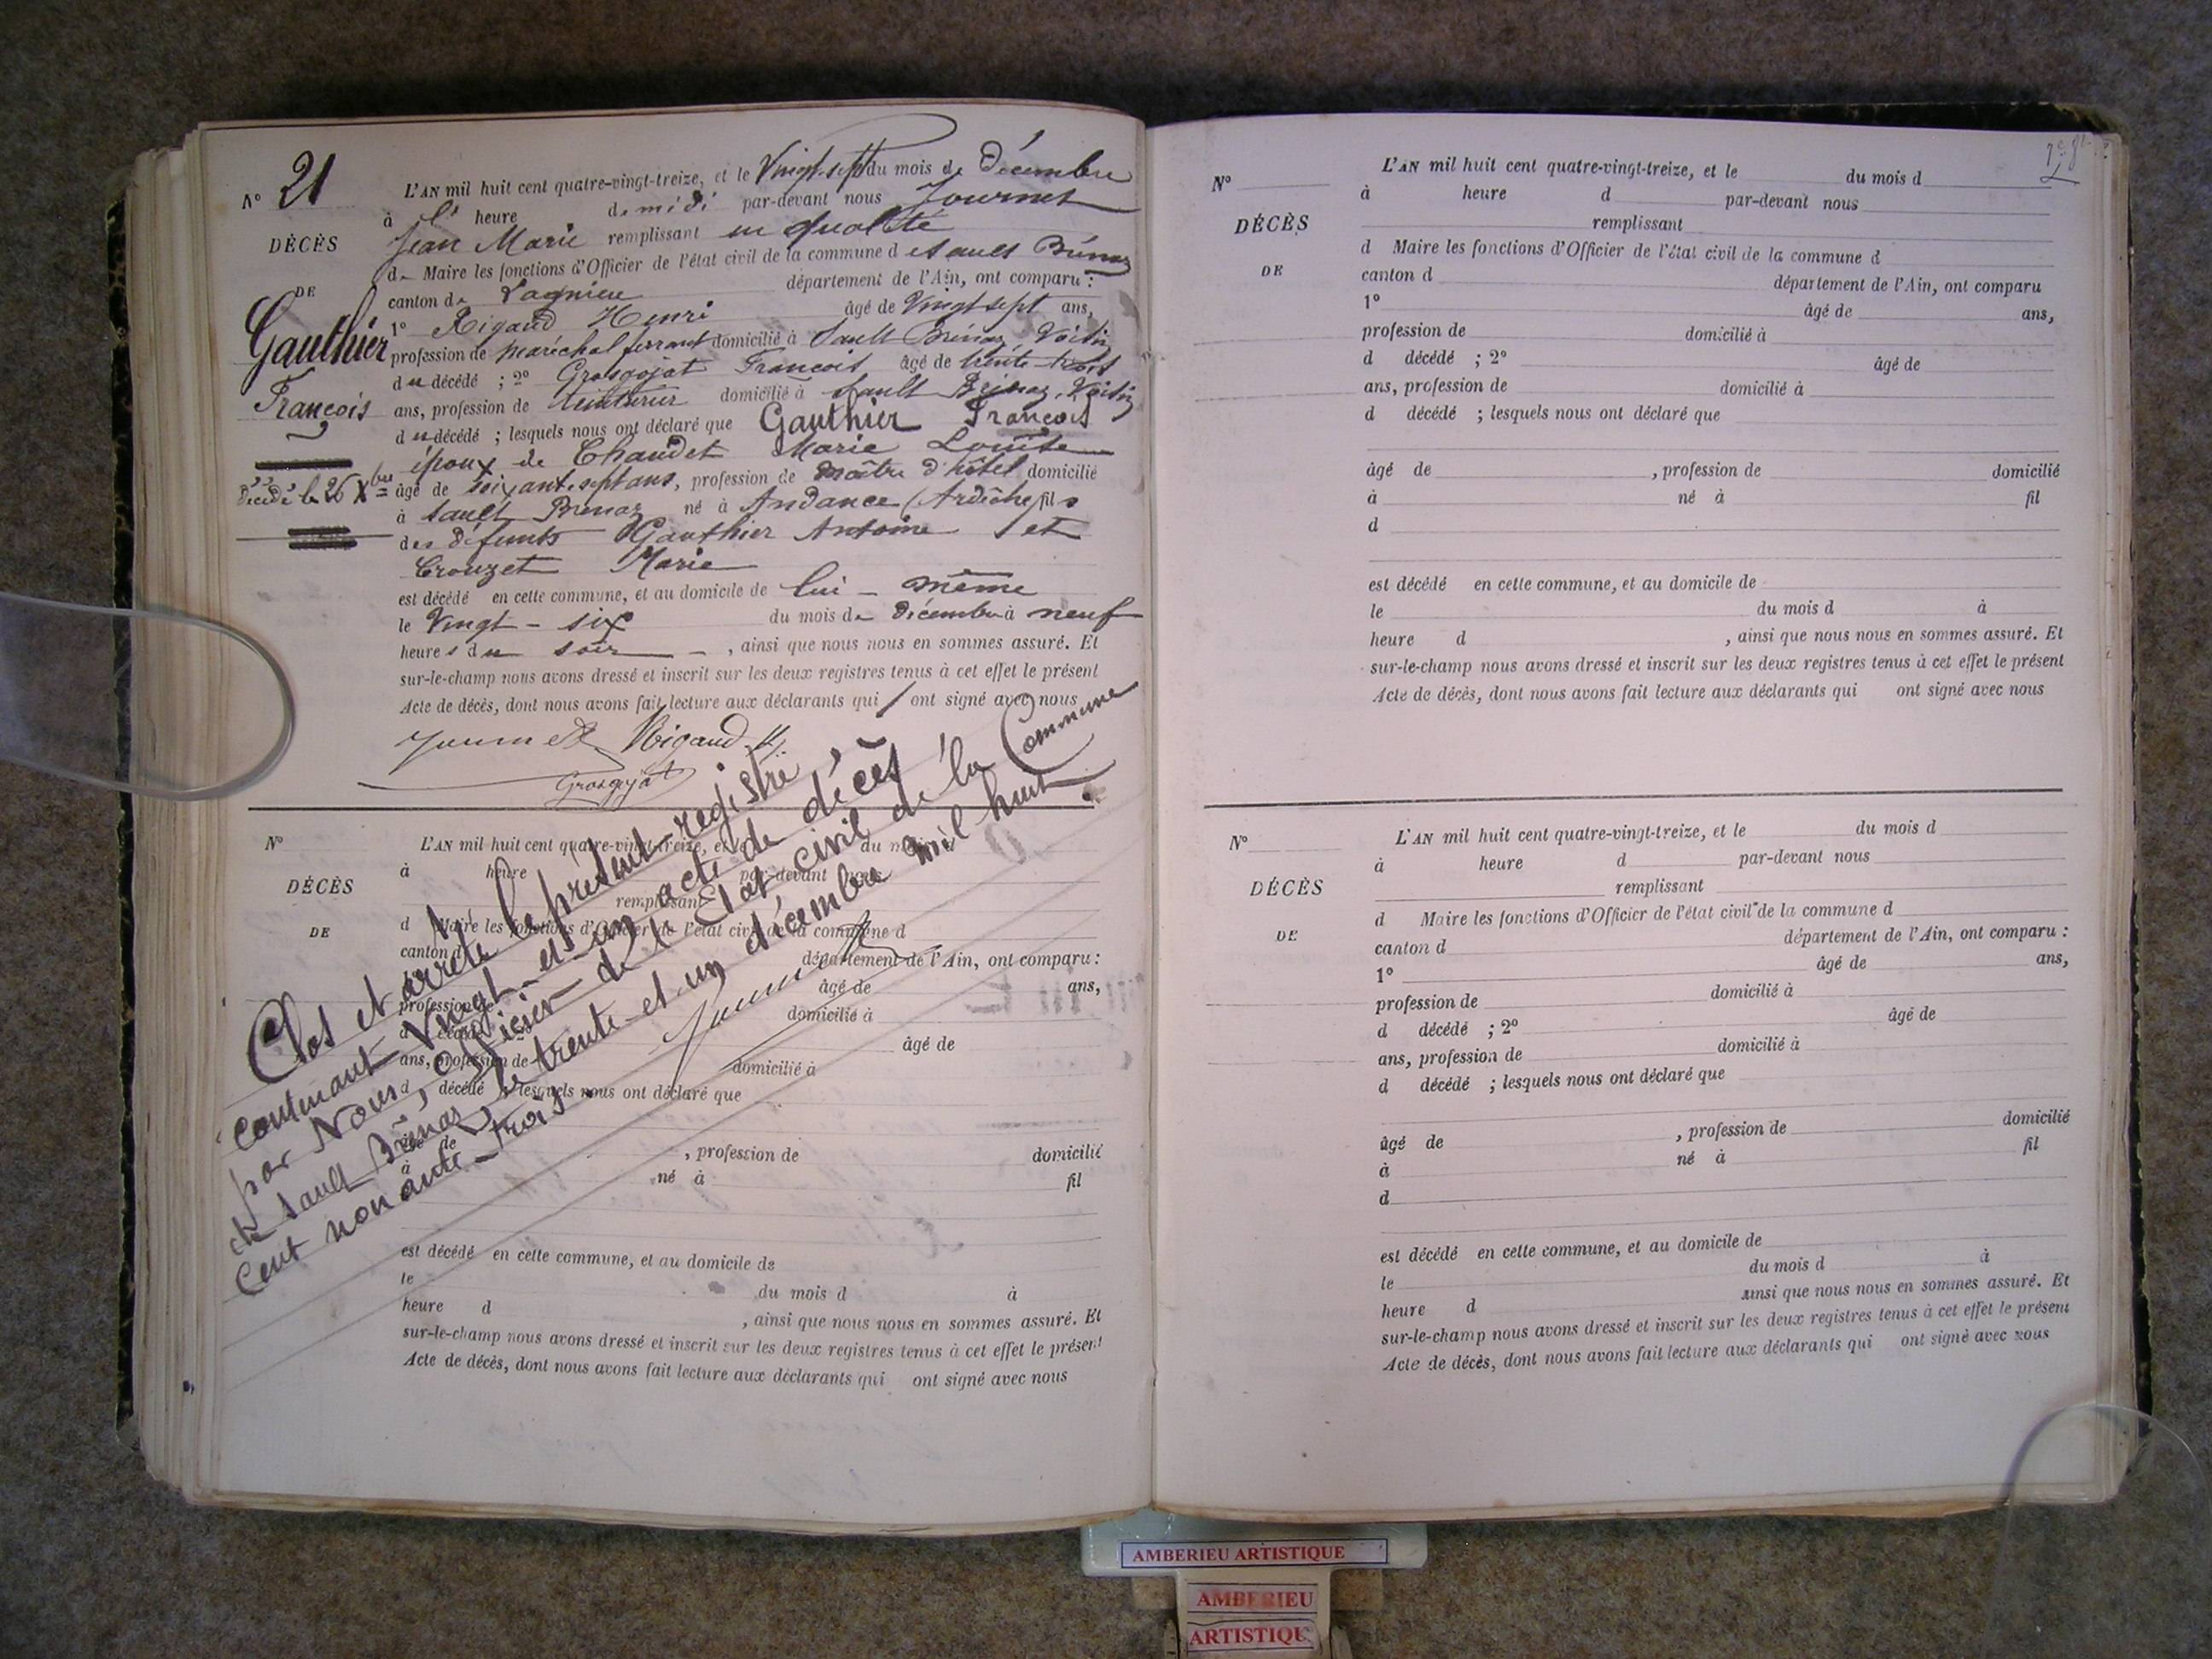 N° 21
DÉCÈS
DE
Gauthier
François
décédé le 26 Xbre
L'AN mil huit cent quatre-vingt-treize, et le Vingt-sept du mois de Décembre
à l' heure de midi par-devant nous Journet
Jean Marie remplissant en qualité
de Maire les fonctions d'Officier de l'état civil de la commune de Sault Brénaz
canton de Lagnieu département de l'Ain, ont comparu :
1° Rigaud Henri âgé de Vingt sept ans,
profession de maréchal ferrant domicilié à Sault Brénaz, Voisin
du décédé ; 2° Grosgojat François âgé de trente trois
ans, profession de teinturier domicilié à Sault Brénaz, Voisin
du décédé ; lesquels nous ont déclaré que Gauthier François
époux de Chaudet Marie Louise
âgé de soixante sept ans, profession de maître d'hôtel domicilié
à Sault Brénaz né à Andance (Ardèche) fils
des défunts Gauthier Antoine et
Crouzet Marie
est décédé en cette commune, et au domicile de lui - même
le Vingt - six du mois de décembre à neuf
heures du soir - , ainsi que nous nous en sommes assuré. Et
sur-le-champ nous avons dressé et inscrit sur les deux registres tenus à cet effet le présent
Acte de décès, dont nous avons fait lecture aux déclarants qui ont signé avec nous
Journet Rigaud H.
Grosgojat
N°
DÉCÈS
DE
L'AN mil huit cent quatre-vingt-treize, et le du mois
à heure par-devant nous
remplissant
d Maire les fonctions d'Officier de l'état civil de la commune d
canton d département de l'Ain, ont comparu :
âgé de ans,
profession de domicilié à
d décédé ; 2° âgé de
ans, profession de domicilié à
d décédé ; lesquels nous ont déclaré que
âgé de , profession de domicilié
à né à fil
est décédé en cette commune, et au domicile de
le du mois d à
heure d , ainsi que nous nous en sommes assuré. Et
sur-le-champ nous avons dressé et inscrit sur les deux registres tenus à cet effet le présent
Acte de décès, dont nous avons fait lecture aux déclarants qui ont signé avec nous
Clos et arrêté le présent registre
contenant Vingt - et - un acte de décès
par Nous, Officier de l'Etat civil de la Commune
de Sault Brénaz, le trente - et un décembre mil huit
cent nonante - trois.
Journet
N°
DÉCÈS
DE
L'AN mil huit cent quatre-vingt-treize, et le du mois d
à heure d par-devant nous
remplissant
d Maire les fonctions d'Officier de l'état civil de la commune d
canton d département de l'Ain, ont comparu
1° âgé de ans,
profession de domicilié à
d décédé ; 2° âgé de
ans, profession de domicilié à
d décédé ; lesquels nous ont déclaré que
âgé de , profession de domicilié
à né à fil
d
est décédé en cette commune, et au domicile de
le du mois d à
heure d , ainsi que nous nous en sommes assuré. Et
sur-le-champ nous avons dressé et inscrit sur les deux registres tenus à cet effet le présent
Acte de décès, dont nous avons fait lecture aux déclarants qui ont signé avec nous
N°
DÉCÈS
DE
L'AN mil huit cent quatre-vingt-treize, et le du mois d
à heure d par-devant nous
remplissant
d Maire les fonctions d'Officier de l'état civil de la commune d
canton d département de l'Ain, ont comparu :
1° âgé de ans,
profession de domicilié à
d décédé ; 2° âgé de
ans, profession de domicilié à
d décédé ; lesquels nous ont déclaré que
âgé de , profession de domicilié
à né à fil
d
est décédé en cette commune, et au domicile de
le du mois d à
heure d ainsi que nous nous en sommes assuré. Et
sur-le-champ nous avons dressé et inscrit sur les deux registres tenus à cet effet le présent
Acte de décès, dont nous avons fait lecture aux déclarants qui ont signé avec nous
AMBERIEU ARTISTIQUE
AMBERIEU
ARTISTIQUE